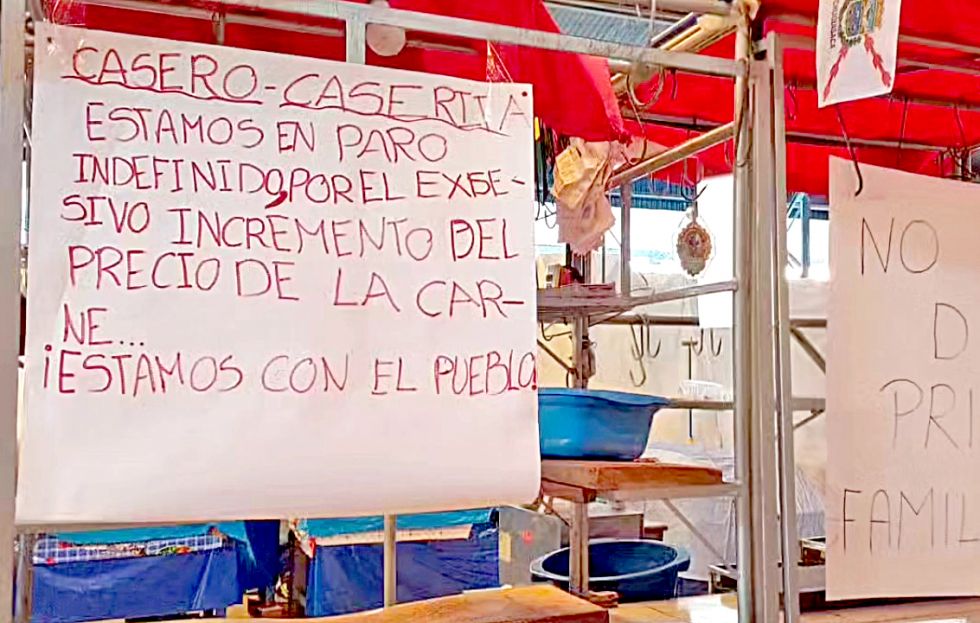 CASERO-CASERITA
ESTAMOS EN PARO
INDEFINIDO, POR EL EXSE-
SIVO INCREMENTO DEL
PRECIO DE LA CAR-
NE...
¡ESTAMOS CON EL PUEBLO!
NO
D
PRE
FAMIL